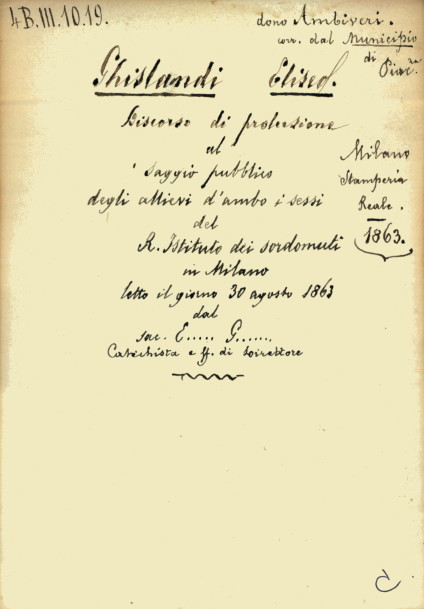 4B.III.10.19.
dono Ambiveri.
corr. dal Municipio
di
Piac.za
Ghislandi Eliseo.
Discorso di prolusione
al
saggio pubblico
degli allievi d'ambo i sessi
del
R. Istituto dei sordomuti
in Milano
letto il giorno 30 agosto 1863
dal
sac. E..... G......
Catechista e ff. di Direttore
Milano
Stamperia
Reale.
1863.